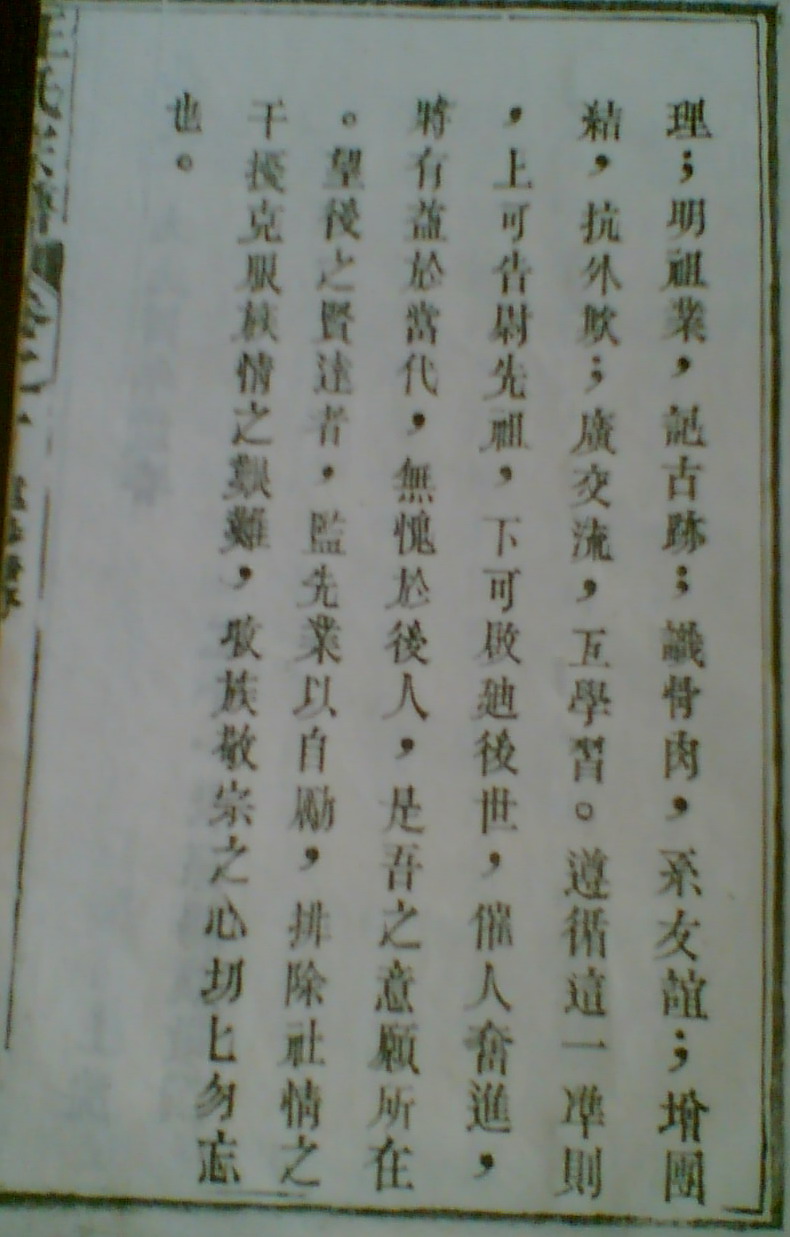 理；明祖業，記古跡；識骨肉，系友誼；增團
結，抗外欺；廣交流，互學習。遵循這一準則
，上可告尉先祖，下可啟迪後世，催人奮進，
將有益於當代，無愧於後人，是吾之意願所在
。望後之賢達者，監先業以自勵，排除社情之
干擾克服族情之艱難，收族敬宗之心切匕勿忘
也。